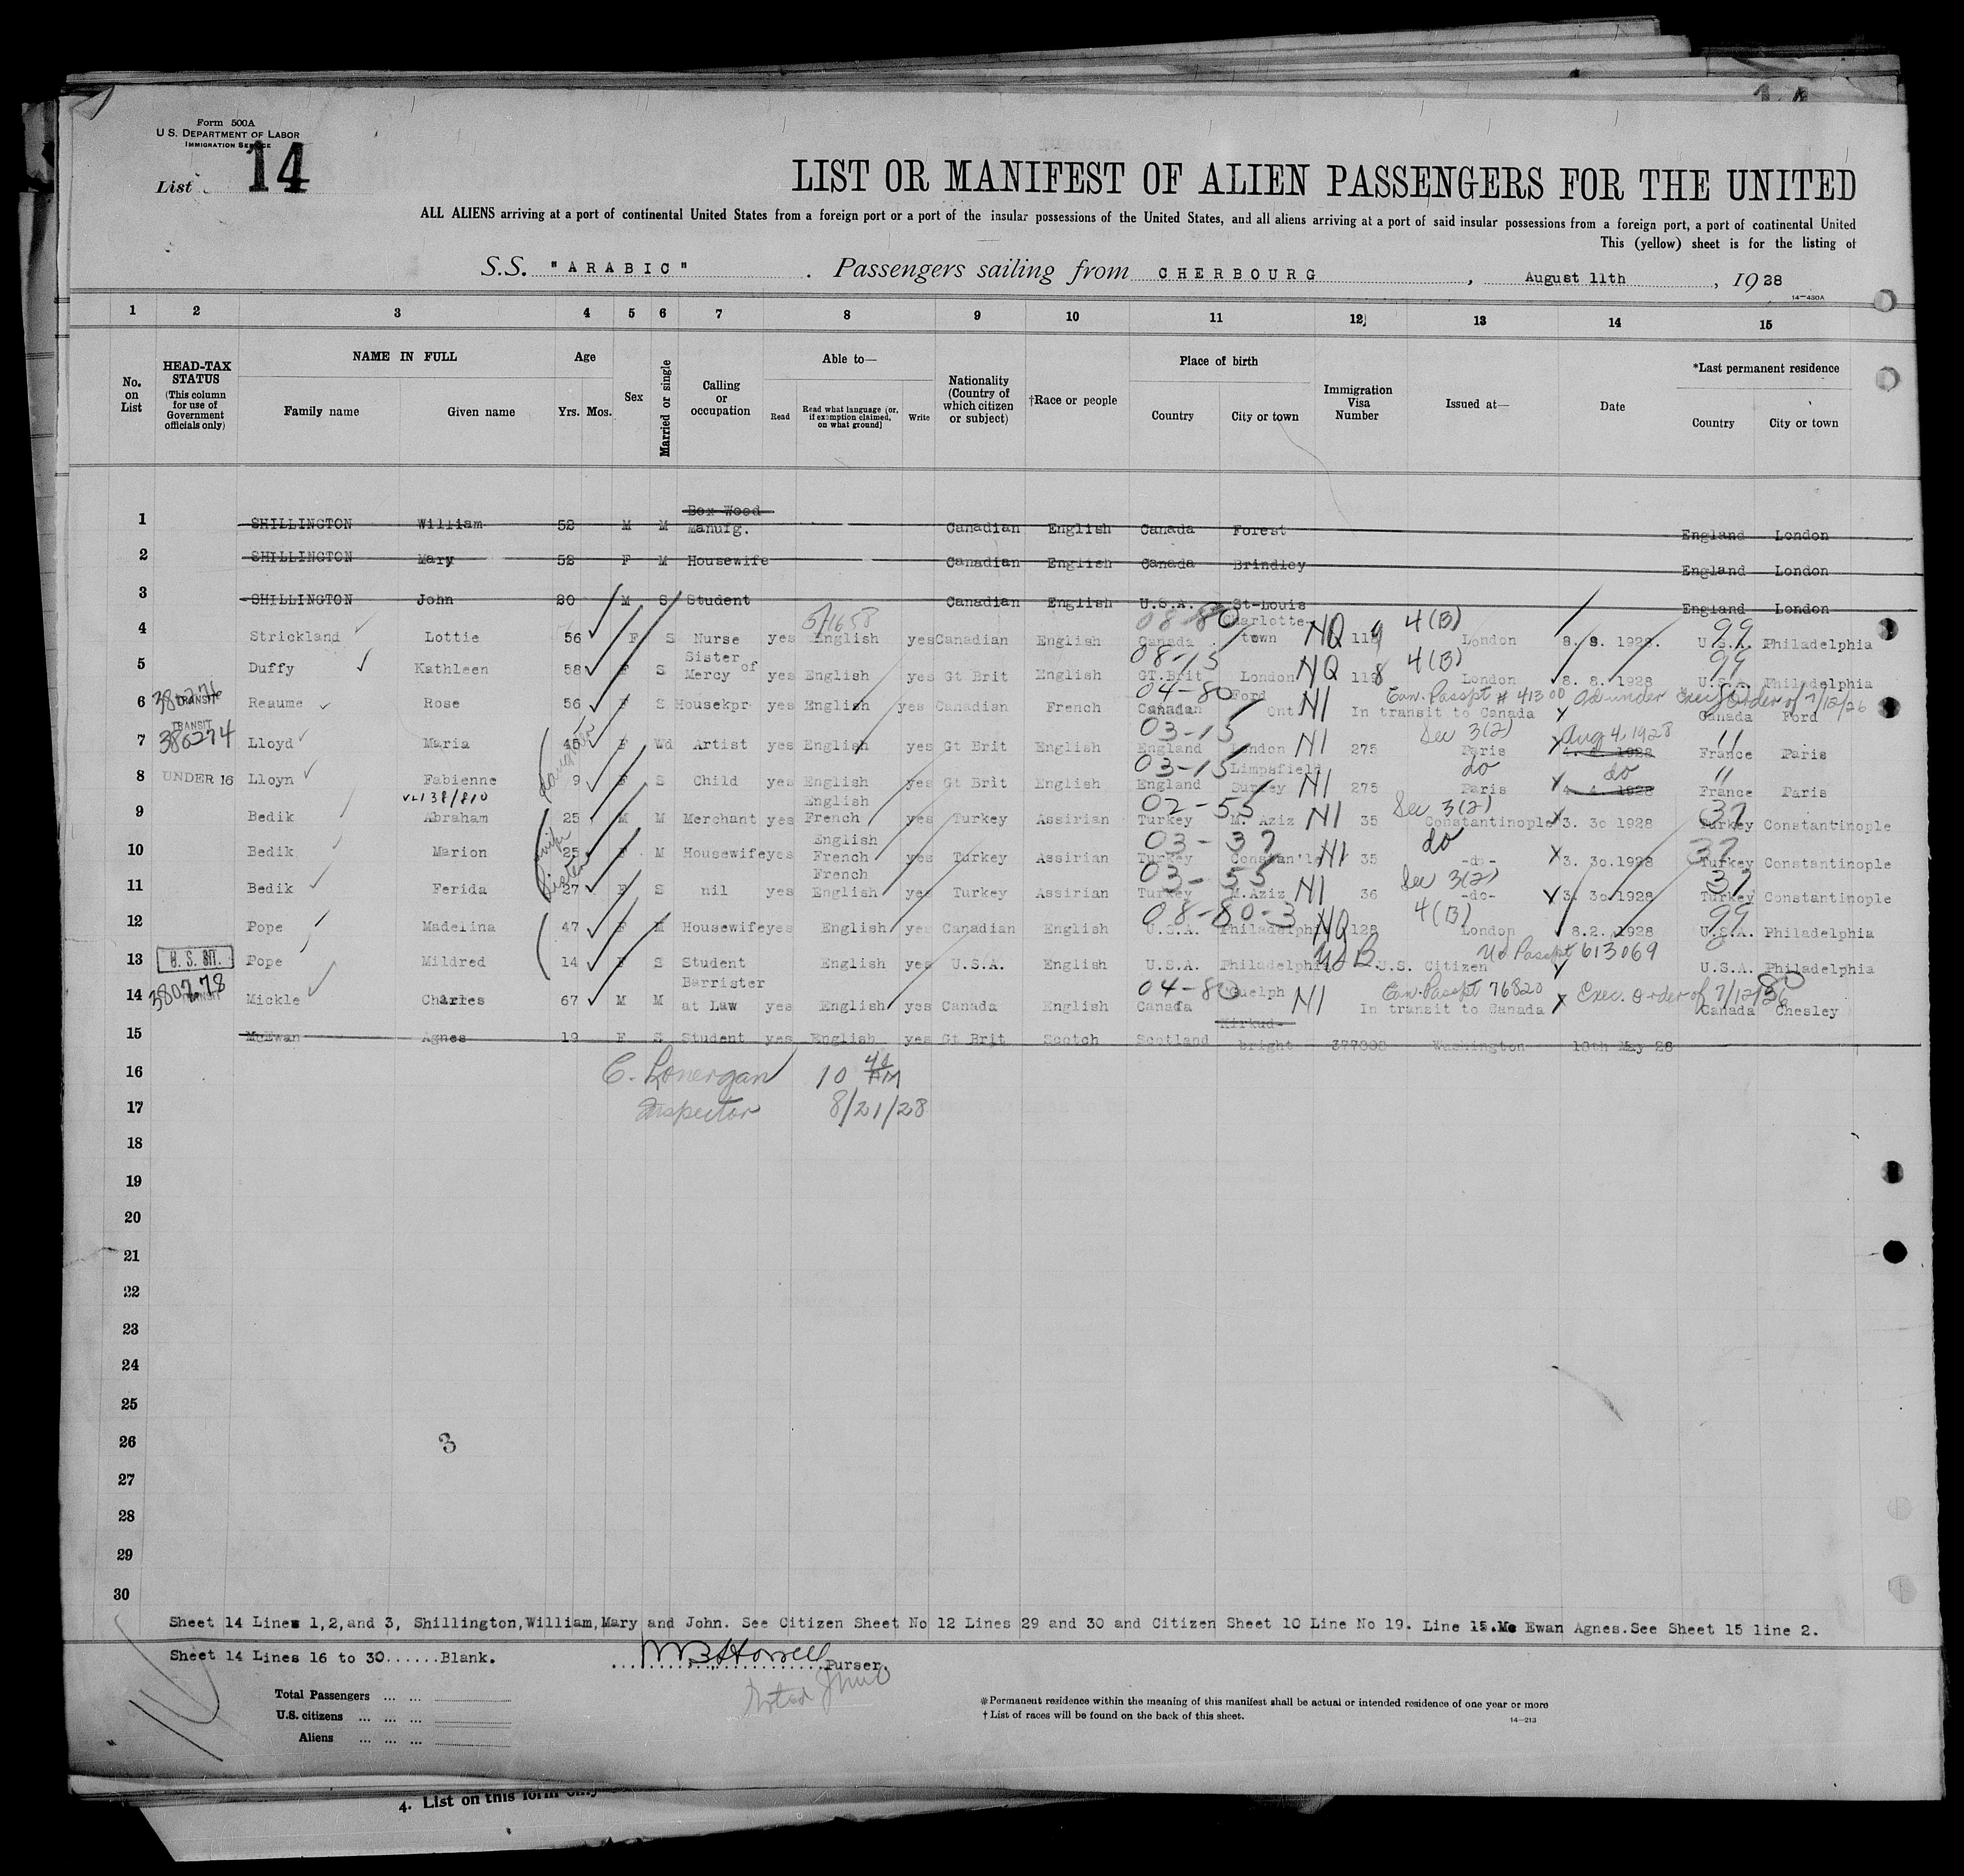 Form 500A
U. S. DEPARTMENT OF LABOR
IMMIGRATION SERVICE
List 14
LIST OR MANIFEST OF ALIEN PASSENGERS FOR THE UNITED
ALL ALIENS arriving at a port of continental United States from a foreign port or a port of the insular possessions of the United States, and all aliens arriving at a port of said insular possessions from a foreign port, a port of continental United
This (yellow) sheet is for the listing of
S.S. "ARABIC" . Passengers sailing from CHERBOURG , August 11th , 1928
14-430A
1 2 3 4 5 6 7 8 9 10 11 12 13 14 15
No. on List
HEAD-TAX STATUS (This column for use of Government officials only)
NAME IN FULL Family name Given name
Age Yrs. Mos.
Sex
Married or single
Calling or occupation
Able to— Read Read what language [or, if exemption claimed, on what ground] Write
Nationality (Country of which citizen or subject)
†Race or people
Place of birth Country City or town
Immigration Visa Number
Issued at—
Date
*Last permanent residence Country City or town
1 SHILLINGTON William 52 M M Box Wood Manufg. Canadian English Canada Forest England London
2 SHILLINGTON Mary 52 F M Housewife Canadian English Canada Brindley England London
3 SHILLINGTON John 20 M S Student Canadian English U.S.A. St-Louis England London
4 Strickland Lottie 56 F S Nurse yes English yes Canadian English 08-80 Canada Charlotte town NQ 119 4(B) London 8. 8. 1928. 99 U.S.A. Philadelphia
5 Duffy Kathleen 58 F S Sister of Mercy yes English yes Gt Brit English 08-15 GT.Brit London NQ 118 4(B) London 8. 8. 1928 99 U.S.A. Philadelphia
6 380276 TRANSIT Reaume Rose 56 F S Housekpr yes English yes Canadian French 04-80 Canadan Ford Ont NI Can. Passpt # 41300 In transit to Canada Exec. Order of 7/12/26 Canada Ford
7 TRANSIT 380274 Lloyd Maria 45 F Wd Artist yes English yes Gt Brit English 03-15 England London NI 275 Sec 3(2) Paris Aug 4, 1928 " France Paris
8 UNDER 16 Lloyn Fabienne daughter 9 F S Child yes English yes Gt Brit English 03-15 England Limpsfield Surrey NI 275 do Paris do 4. 4. 1928 " France Paris
9 Bedik Abraham 25 M M Merchant yes English French yes Turkey Assirian 02-55 Turkey M. Aziz NI 35 Sec 3(2) Constantinople 3. 30 1928 37 Turkey Constantinople
10 Bedik Marion wife 25 F M Housewife yes English French yes Turkey Assirian 03-37 Turkey Constan'le NI 35 do -do- 3. 30.1928 37 Turkey Constantinople
11 Bedik Ferida sister 27 F S nil yes French English yes Turkey Assirian 03-55 Turkey M.Aziz NI 36 Sec 3(2) -do- 3. 30 1928 37 Turkey Constantinople
12 Pope Madelina 47 F M Housewife yes English yes Canadian English 08-80-3 U.S.A. Philadelphia NQ 128 4(B) London 8.2. 1928 99 U.S.A. Philadelphia
13 U. S. BIT. Pope Mildred 14 F S Student English yes U.S.A. English U.S.A. Philadelphia USB U.S. Citizen US Passpt 613069 U.S.A. Philadelphia
14 380278 TRANSIT Mickle Charles 67 M M Barrister at Law yes English yes Canada English 04-80 Canada Guelph NI Can. Passpt 76820 In transit to Canada Exec. Order of 7/12/26 80 Canada Chesley
15 McEwan Agnes 19 F S Student yes English yes Gt Brit Scotch Scotland Kirkud- bright 377808 Washington 18th May 28
16 C. Lonergan 10 40 AM
17 Inspector 8/21/28
18
19
20
21
22
23
24
25
26 3
27
28
29
30
Sheet 14 Lines 1,2,and 3, Shillington,William,Mary and John. See Citizen Sheet No 12 Lines 29 and 30 and Citizen Sheet 10 Line No 19. Line 15.Mc Ewan Agnes.See Sheet 15 line 2.
Sheet 14 Lines 16 to 30......Blank. Purser.
Total Passengers ... ...
U.S. citizens ... ... ...
Aliens ... ... ...
*Permanent residence within the meaning of this manifest shall be actual or intended residence of one year or more
† List of races will be found on the back of this sheet.
14-213
4. List on this form only